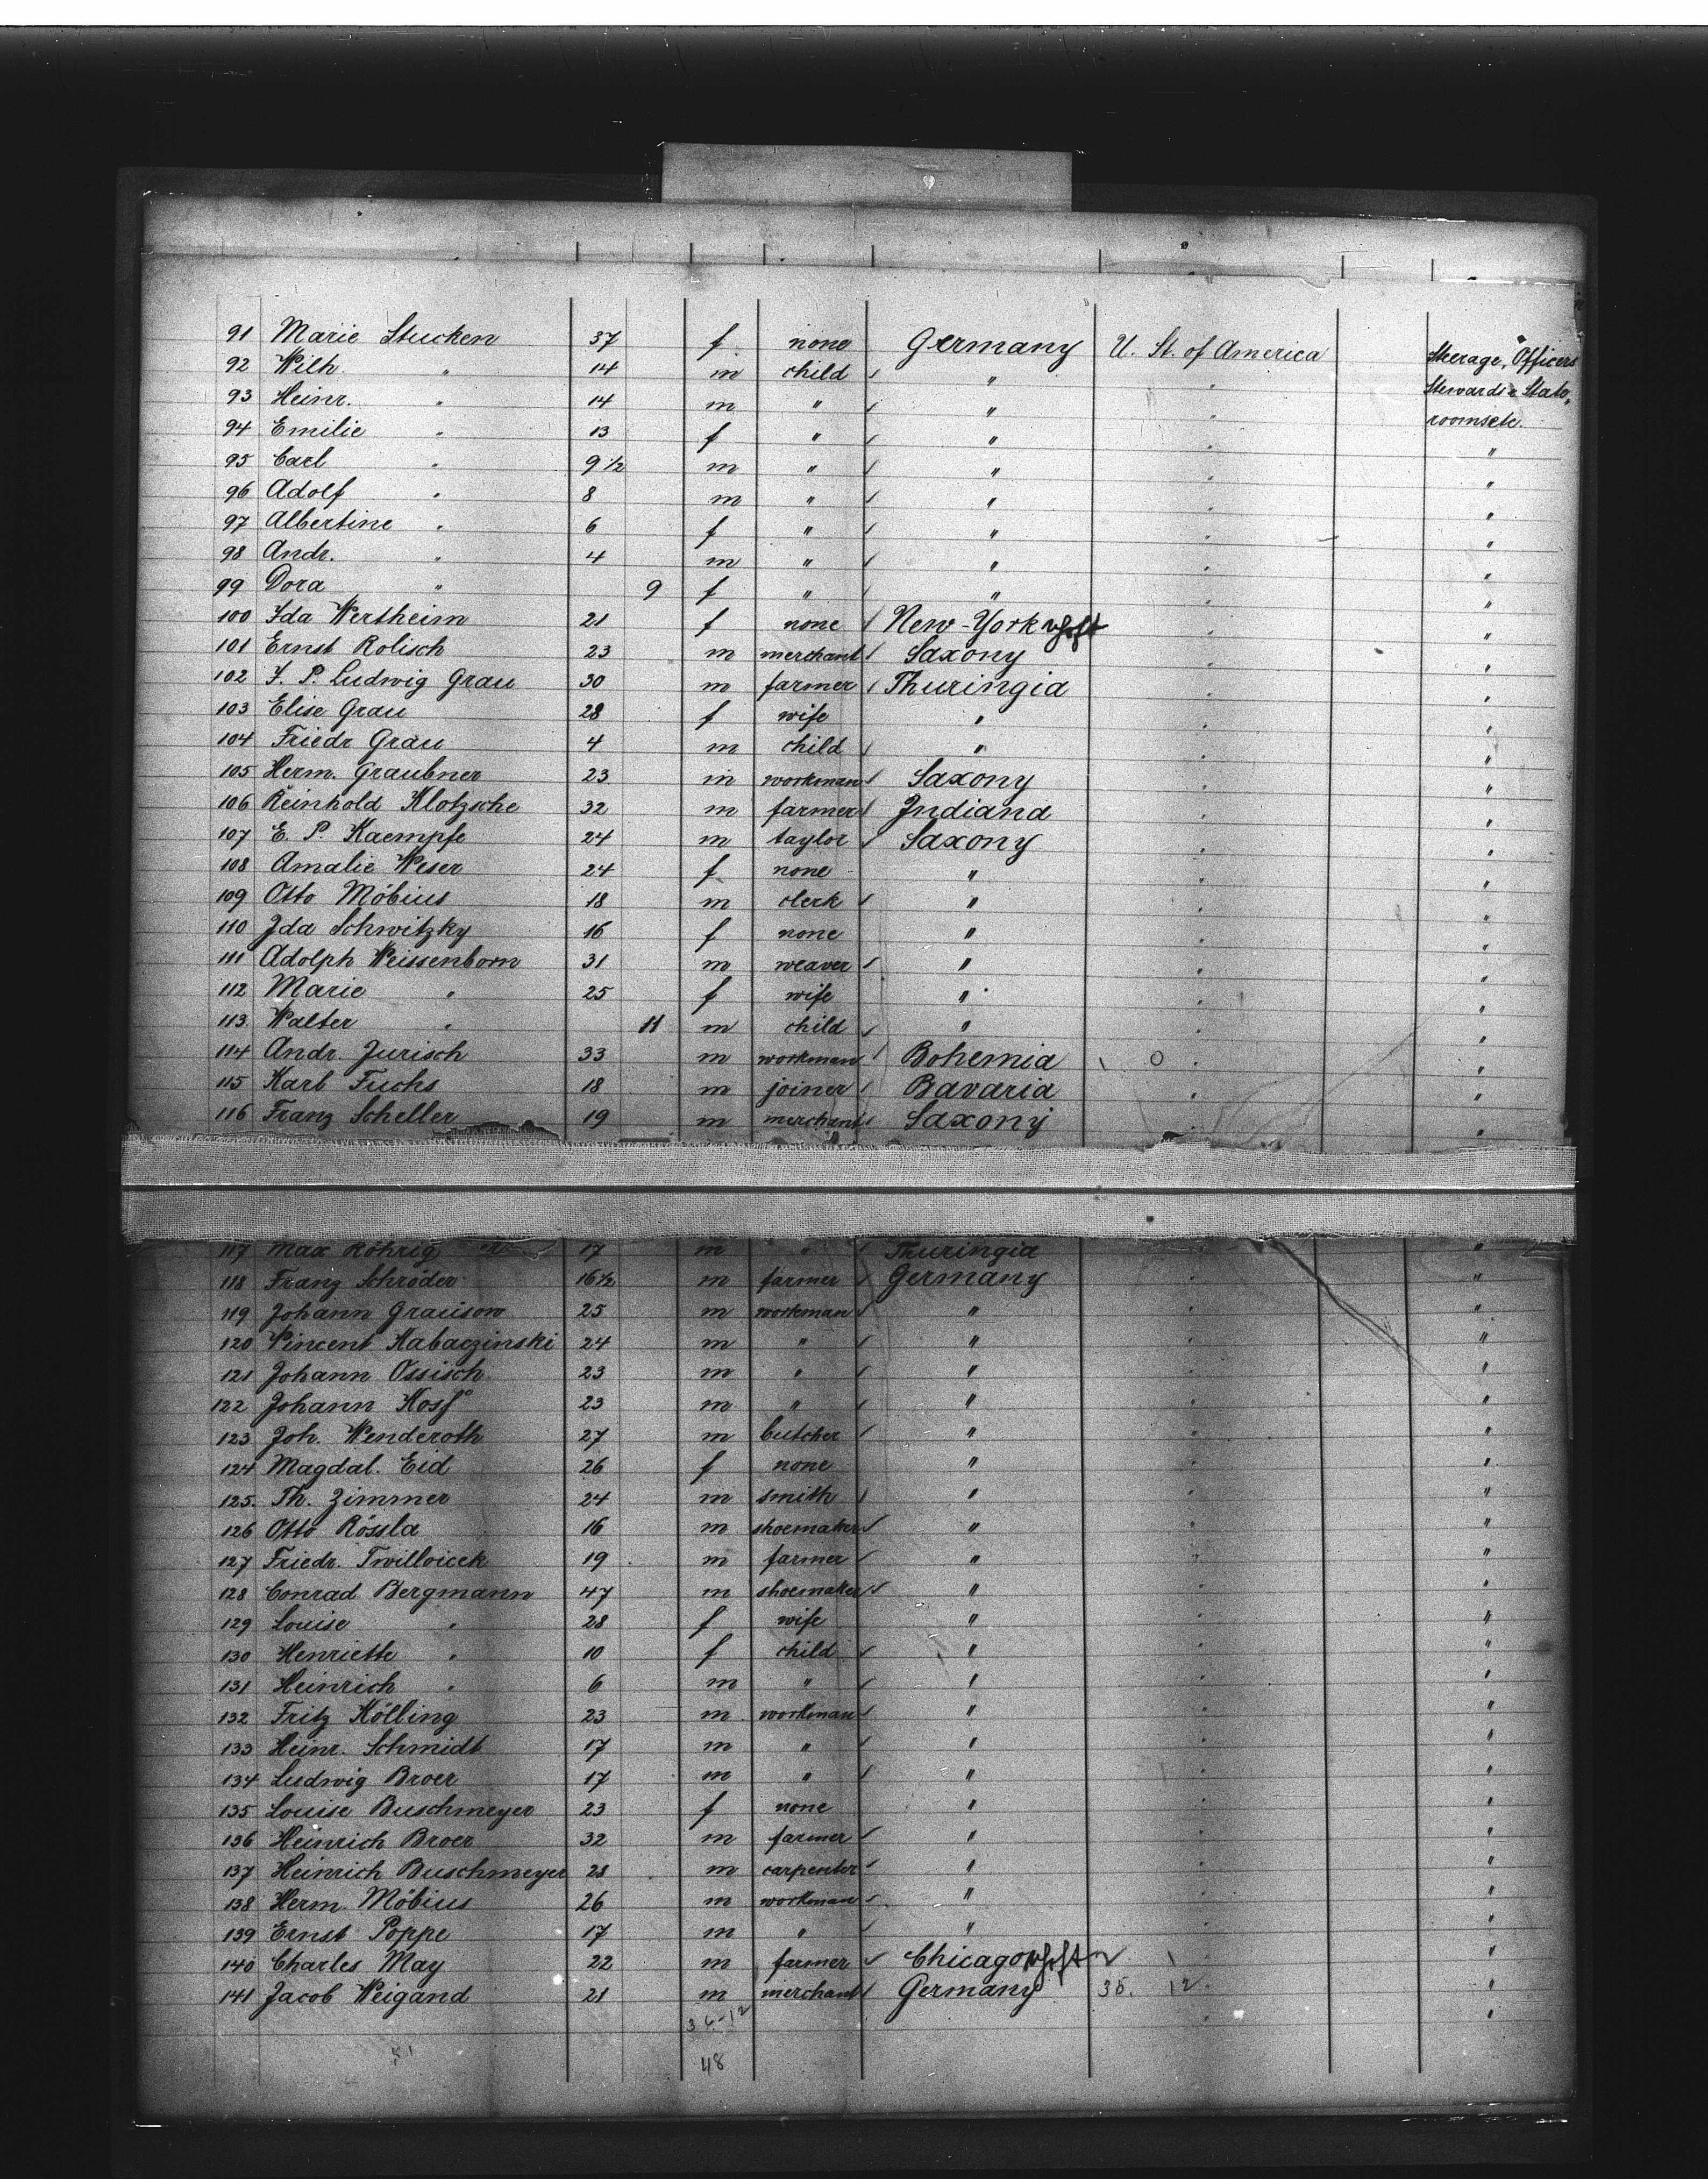 91 Marie Stucken 37 f. none Germany U. St. of America Steerage, Officers
92 Wilh. " 14 m child " " Stewards & State,
93 Heinr. " 14 m " " " roomsetc.
94 Emilie " 13 f " " " "
95 Carl " 9 1/2 m " " " "
96 Adolf " 8 m " " " "
97 Albertine " 6 f " " " "
98 Andr. " 4 m " " " "
99 Dora " 9 f " " " "
100 Ida Wertheim 21 f none New-York " "
101 Ernst Rolisch 23 m merchant Saxony " "
102 J. P. Ludwig Grau 30 m farmer Thuringia " "
103 Elise Grau 28 f wife " " "
104 Friedr Grau 4 m child " " "
105 Herm. Graubner 23 m workman Saxony " "
106 Reinhold Klotzsche 32 m farmer Indiana " "
107 E. P. Kaempfe 24 m taylor Saxony " "
108 Amalie Weser 24 f none " " "
109 Otto Möbius 18 m clerk " " "
110 Ida Schwitzky 16 f none " " "
111 Adolph Weissenborn 31 m weaver " " "
112 Marie " 25 f wife " " "
113. Walter " 11 m child " " "
114 Andr. Jurisch 33 m workman Bohemia 0 " "
115 Karl Fuchs 18 m joiner Bavaria " "
116 Franz Scheller 19 m merchant Saxony " "
117 Max Röhrig 17 m " Thuringia "
118 Franz Schröder 16 1/2 m farmer Germany " "
119 Johann Grausow 25 m workman " " "
120 Vincent Kabaczinski 24 m " " " "
121 Johann Ossisch 23 m " " " "
122 Johann 23 m " " " "
123 Joh. Wenderoth 27 m butcher " " "
124 Magdal. Eid 26 f none " " "
125. Th. Zimmer 24 m smith " " "
126 Otto Rössla 16 m shoemaker " " "
127 Friedr. 19 m farmer " " "
128 Conrad Bergmann 47 m shoemaker " " "
129 Louise " 28 f wife " " "
130 Henriette " 10 f child " " "
131 Heinrich " 6 m " " " "
132 Fritz Kölling 23 m workman " " "
133 Heinr. Schmidt 17 m " " " "
134 Ludwig Broer 17 m " " " "
135 Louise Buschmeyer 23 f none " " "
136 Heinrich Broer 32 m farmer " " "
137 Heinrich Buschmeyer 28 m carpenter " " "
138 Herm. Möbius 26 m workman " " "
139 Ernst Poppe 17 m " " " "
140 Charles May 22 m farmer Chicago "
141 Jacob Weigand 21 m merchant Germany 36. 12 "
36-12
51
48